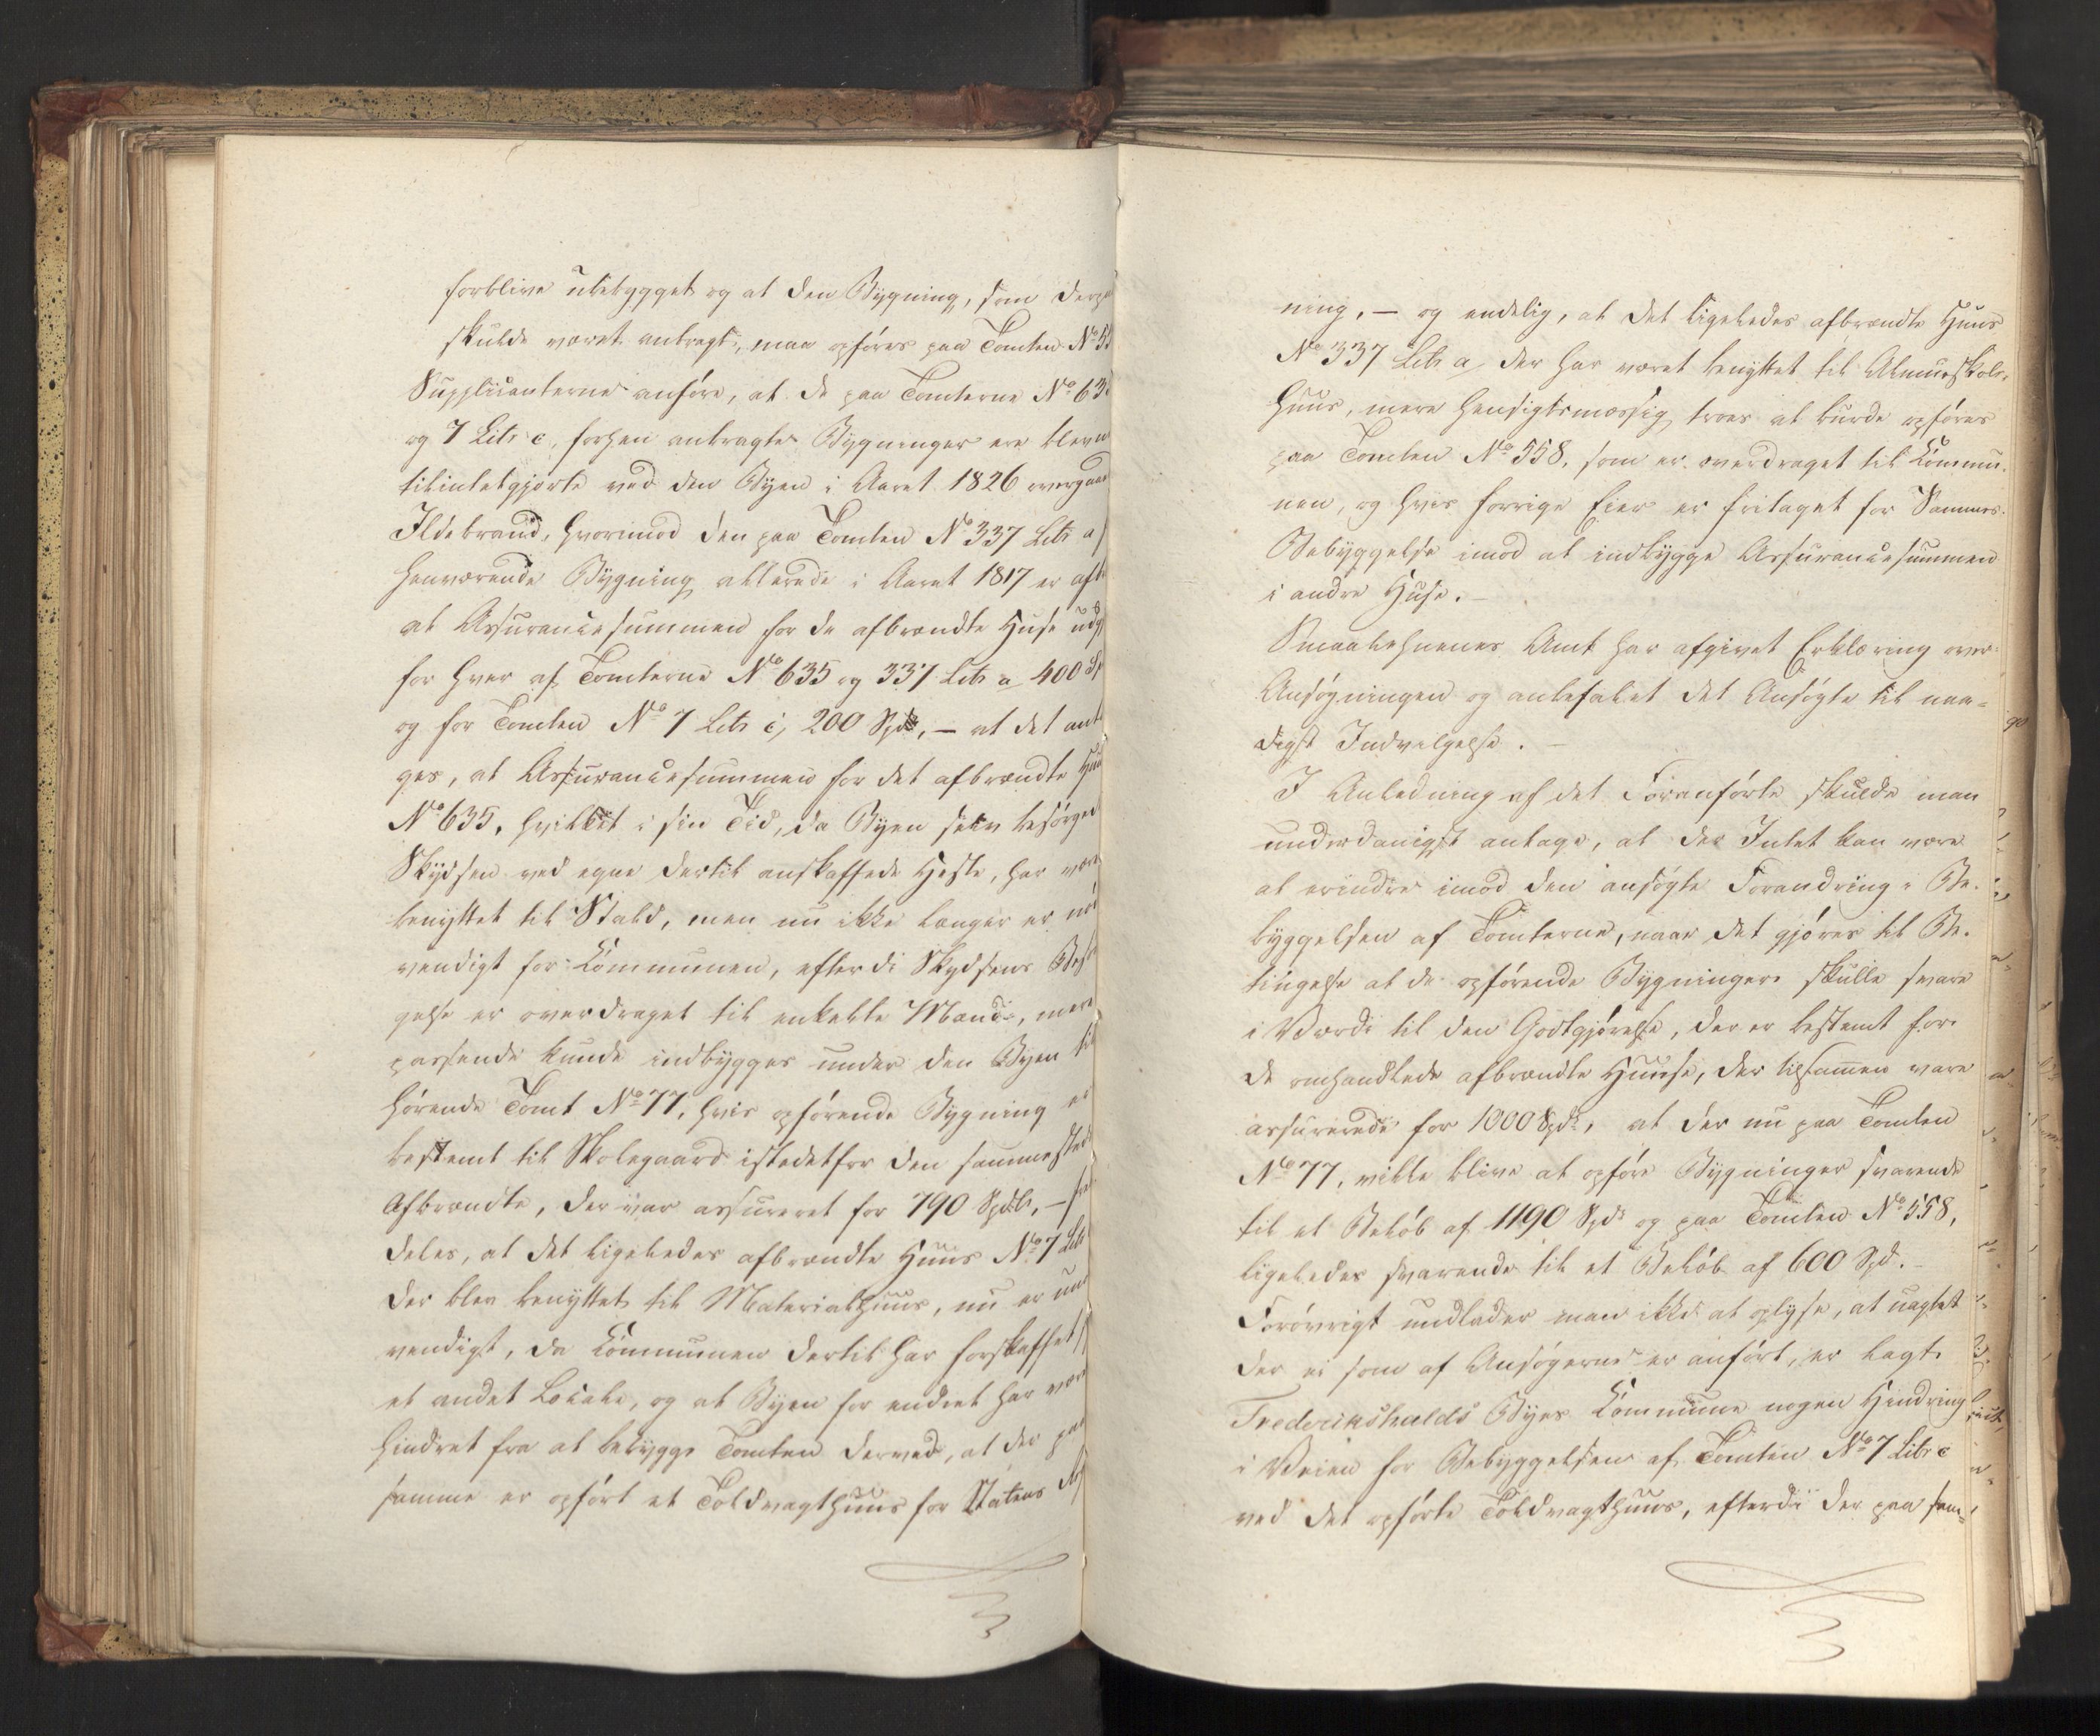 forblive ubebygget og at den Bygning, som derpaa
skulde været anbragt, maa opføres paa Tomten No 55
Supplicanterne anføre, at de paa Tomterne No 635
og 7 Litr c, forhen anbragte Bygninger ere blevne
tilintetgjorte ved den Byen i Aaret 1826 overgaaede
Ildebrand, hvorimod den paa Tomten No 337 Litr a
henværende Bygning allerede i Aaret 1817 er
at Assurancesummen for de afbrændte Huse
for hver af Tomterne No 635 og 337 Litr a 400 Sp
og for Tomten No 7 Litr c, 200 Spd, – at det anta
ges, at Assurancesummen for det afbrændte Huus
No 635, hvilket i sin Tid, da Byen selv besørgede
Skydsen ved egne dertil anskaffede Heste, har været
benyttet til Stald, men nu ikke længer er nød
vendigt for Communen, efterdi Skydsens Besør
gelse er overdraget til enkelte Mænd, mere
passende kunde indbygges under den Byen til
hørende Tomt No 77, hvis opførende Bygning er
bestemt til Skolegaard istedetfor den sammesteds
Afbrændte, der var assureret for 790 Spdlr, –
deles, at det ligeledes afbrændte Huus No 7 Litr
der blev benyttet til Materialhuus, nu er unød
vendigt, da Communen dertil har forskaffet
et andet Locale, og at Byen for endeel har været
hindret fra at bebygge Tomten derved, at der paa
samme er opført et Toldvagthuus for Statens
ning, – og endelig, at det ligeledes afbrændte Huus
No 337 Litr a, der har været benyttet til Almueskole-
huus, mere hensigtsmæssig troes at burde opføres
paa Tomten No 558, som er overdraget til Commu-
nen, og hvis forrige Eier er fritaget for Sammes
Bebyggelse imod at indbygge Assurancesummen
i andre Huse. –
Smaalehnenes Amt har afgivet Erklæring over
Ansøgningen og anbefalet det Ansøgte til naa-
digst Indvilgelse. –
I Anledning af det Foranførte skulde man
underdanigst antage, at der Intet kan være
at erindre imod den ansøgte Forandring i Be-
byggelsen af Tomterne, naar det gjøres til Be-
tingelse at de opførende Bygninger skulle svare
i Værdi til den Godtgjørelse, der er bestemt for
de omhandlede afbrændte Huuse, der tilsammen vare
assurerede for 1000 Spd, at der nu paa Tomten
No 77, vilde blive at opføre Bygninger svarende
til et Beløb af 1190 Spd og paa Tomten No 558,
ligeledes svarende til et Beløb af 600 Spd. –
Forøvrigt undlader man ikke at oplyse, at uagtet
der ei som af Ansøgerne er anført, er lagt
Frederikshalds Byes Commune nogen Hindring
i Veien for Bebyggelsen af Tomten No 7 Litr c
ved det opførte Toldvagthuus, efterdi der paa sam-